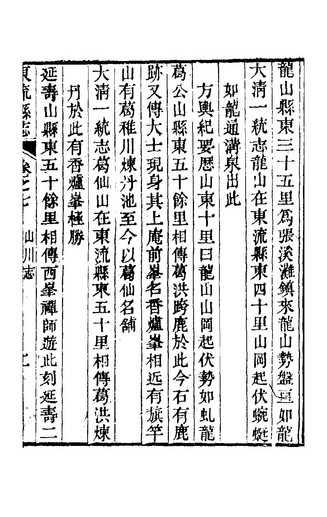 龍山縣東三十五里爲張溪灘鎮來龍山勢盤亘如龍
大清一統志龍山在東流縣東四十里山岡起伏蜿蜒
如龍通溝泉出此
方輿紀要歷山東十里曰龍山山岡起伏勢如虬龍
葛公山縣東五十餘里相傳葛洪跨鹿於此今石有鹿
跡又傳大士現身其上庵前峯名香爐峯相近有旗竿
山有葛稚川煉丹池至今以葛仙名舖
大清一統志葛仙山在東流縣東五十里相傳葛洪煉
丹於此有香爐峯極勝
延壽山縣東五十餘里相傳西峯禪師遊此刻延壽二
東流縣志
卷之七
山川志